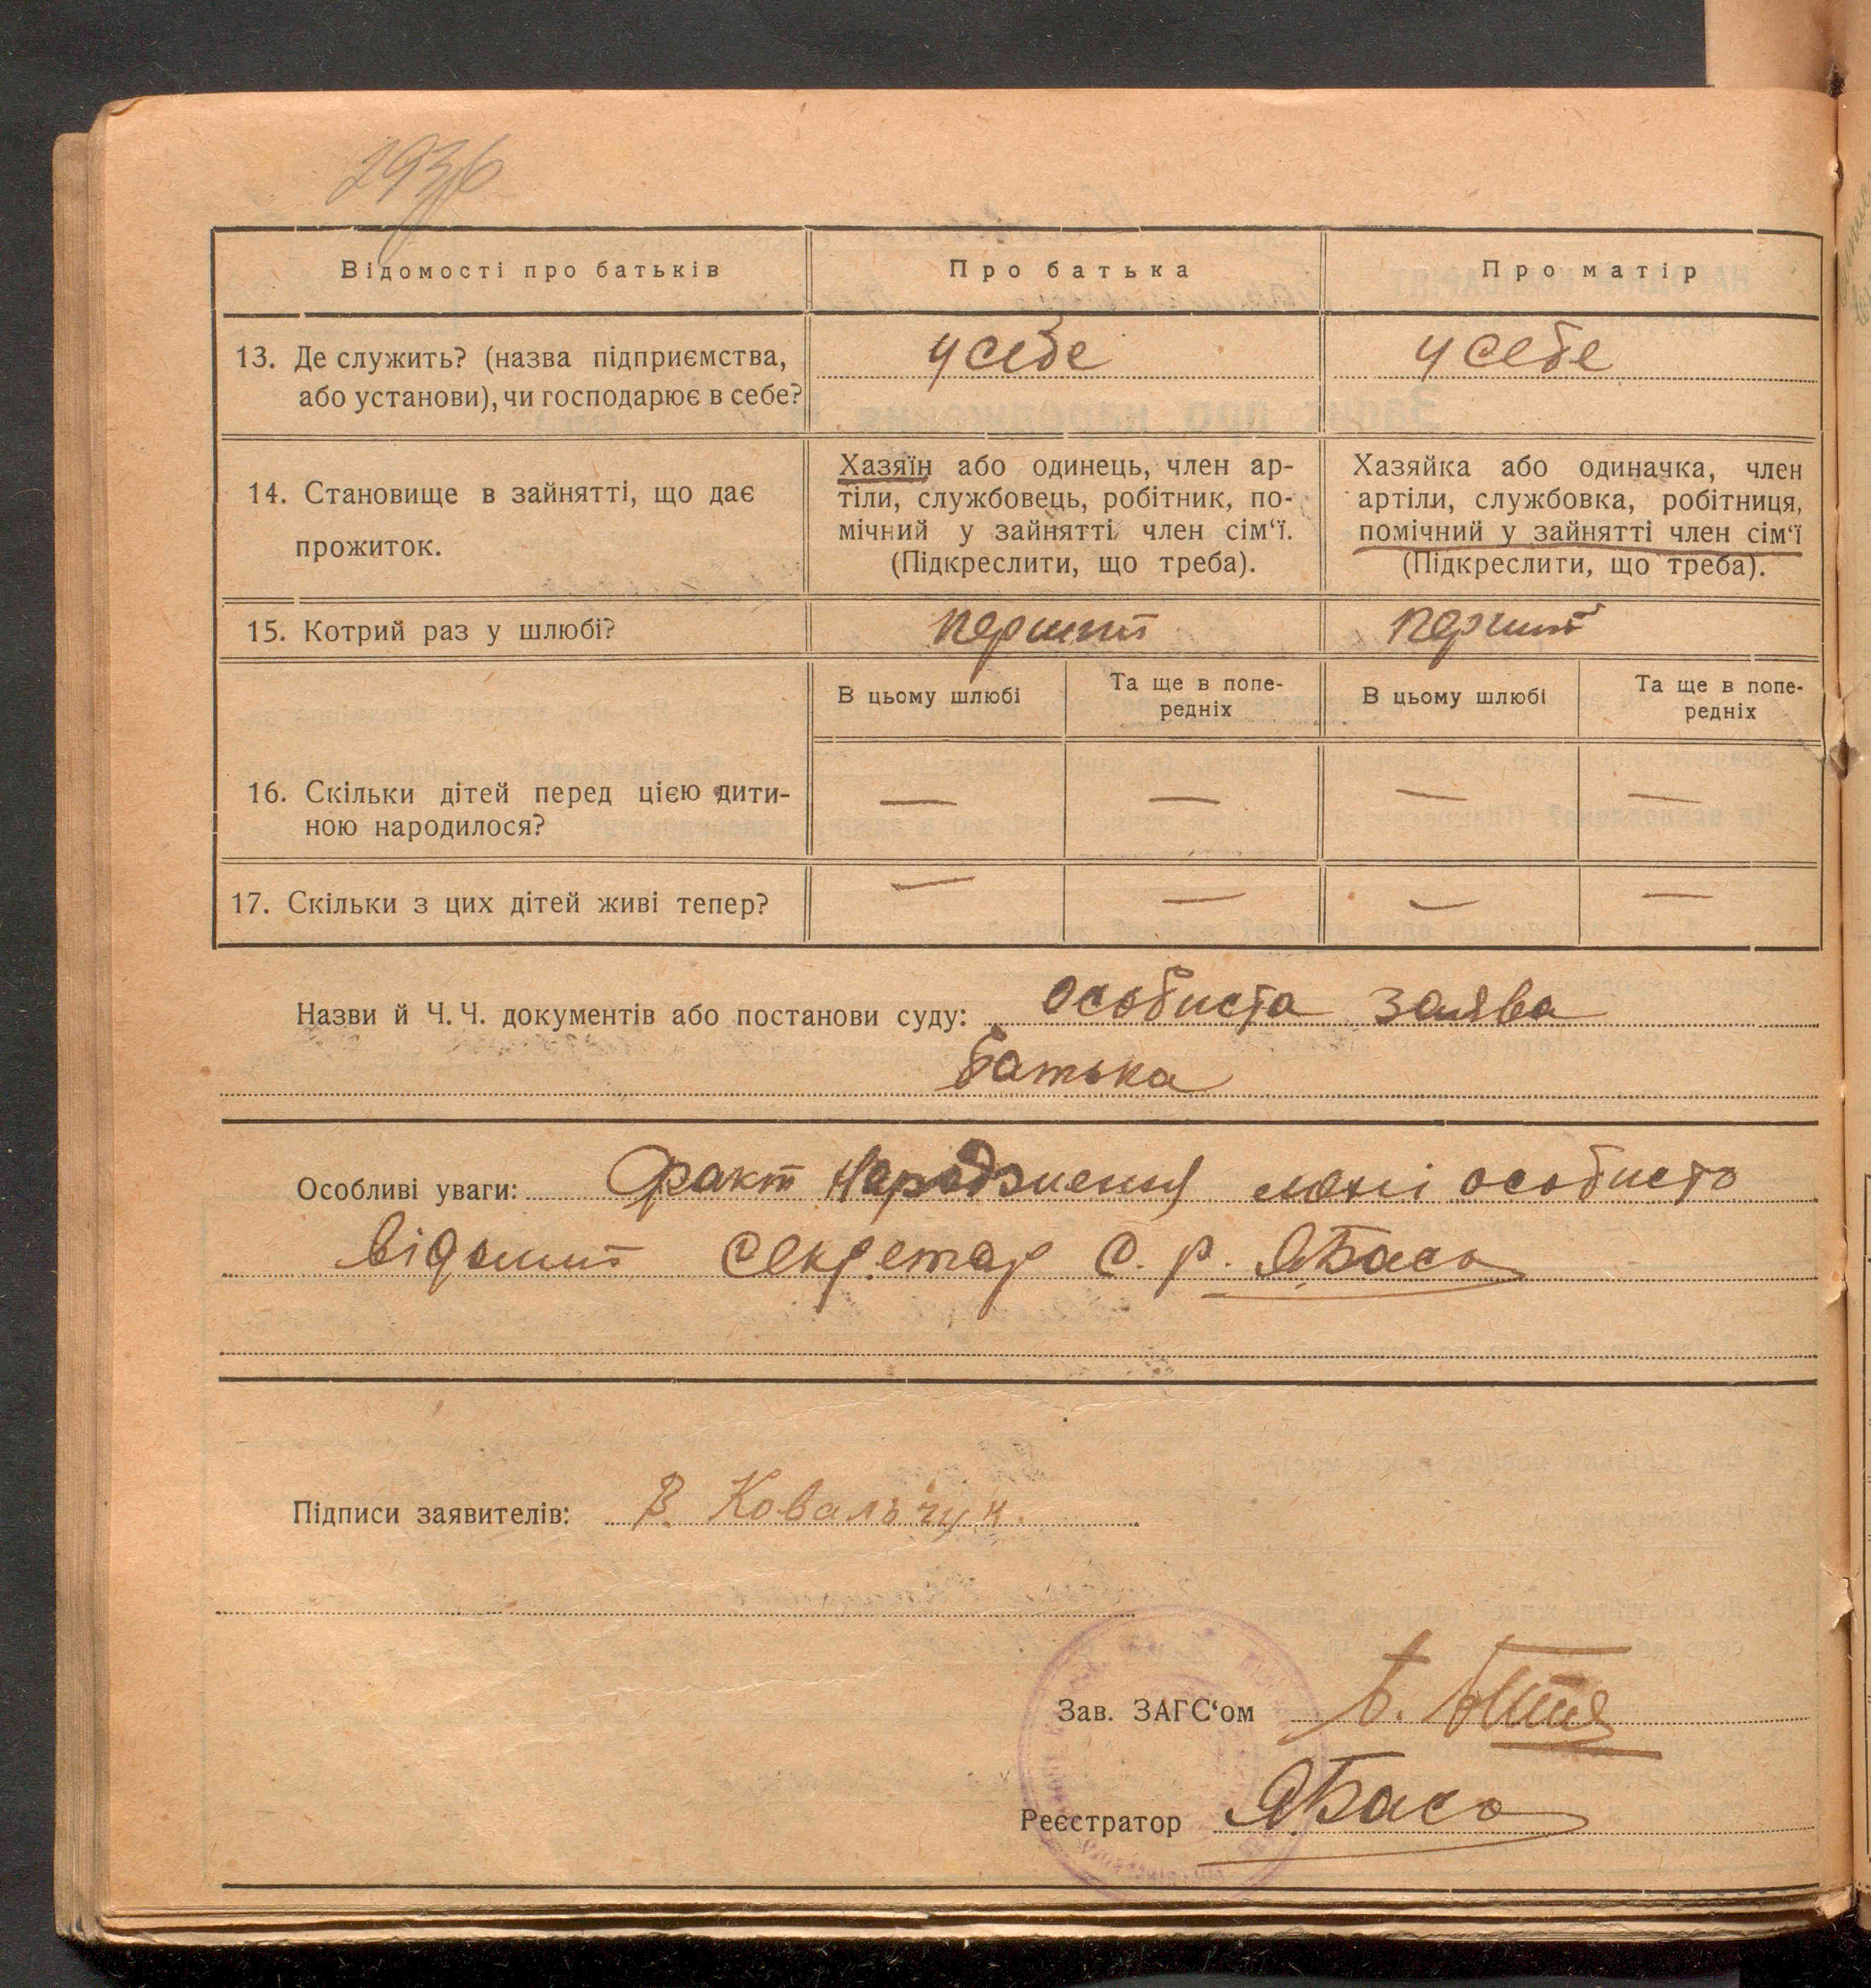 Відомості про батьків
Про батька
Про матір
13. Де служить? (назва підприємства,
або установи), чи господарює в себе?
у себе
у себе
14. Становище в зайнятті, що дає
прожиток.
Хазяїн або одинець, член ар-
тіли, службовець, робітник, по-
мічний у зайнятті член сім‘ї.
(Підкреслити, що треба).
Хазяйка або одиначка, член
артіли, службовка, робітниця,
помічний у зайнятті член сім‘ї
(Підкреслити, що треба).
15. Котрий раз у шлюбі?
перший
перший
В цьому шлюбі
Та ще в попе-
редніх
В цьому шлюбі
Та ще в попе-
редніх
16. Скільки дітей перед цією дити-
ною народилося?
— — — —
17. Скільки з цих дітей живі тепер?
— — — —
Назви й Ч. Ч. документів або постанови суду: особиста заява
батька
Особливі уваги: Факт народження мені особисто
відомий секретар С. р. ЯБасо
Підписи заявителів: В. Ковальчук.
Зав. ЗАГС‘ом
Реєстратор ЯБасо